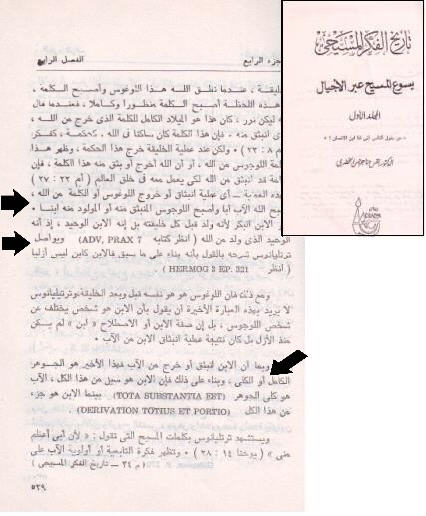 تاريخ الفكر المسيحي
يسوع المسيح عبر الأجيال
المجلد الأول
الجزء الرابع
الفصل الرابع
الخليقة ، عندما نطق الله هذا اللوغوس وأصبح الكلمة ،
هذه اللحظة أصبح الكلمة منظورا وكاملا ، فعندما قال
ليكن نور ، كان هذا هو الميلاد الكامل للكلمة الذى خرج من الله ،
انبثق منه ٠ فإن هذا الكلمة كان ساكنا فى الله كحكمة ، كفكر
٨ : ٢٢) ٠ ولكن عند عملية الخليقة خرج هذا الحكمة ، وظهر هذا
اللوجوس من الله ، أو أن الله أخرج أو بثق منه هذا الكلمة ، فإن
قد انبثق من الله لكى يعمل معه فى خلق العالم (أم ٢٢ : ٢٧)
هذه العملية ــ أى عملية انبثاق أو خروج اللوغوس أو الكلمة من الله ،
الله الآب أبا وأصبح اللوجوس المنبثق منه أو المولود منه ابنا ٠
الابن البكر لأنه ولد قبل كل خليقته بل إنه الابن الوحيد ، إذ أنه
الوحيد الذى ولد من الله (انظر كتابه ADV, PRAX 7) ويواصل
ترتليانوس شرحه بالقول بأنه بناء على ما سبق فالابن كابن ليس أزليا
(انظر HERMOG 3 EP. 321) ٠
ومع ذلك فإن اللوغوس هو هو نفسه قبل وبعد الخليقة وترتليانوس
لا يريد بهذه العبارة الأخيرة أن يقول بأن الابن هو شخص يختلف عن
شخص اللوجوس ، بل إن صفة الابن أو الاصطلاح «ابن» لم يكن
منذ الأزل بل كان نتيجة عملية انبثاق الابن من الآب ٠
وبما أن الابن انبثق أو خرج من الآب فهذا الأخير هو الجوهر
الكامل أو الكلى ، وبناء على ذلك فإن الابن هو سيل من هذا الكل ، الآب
هو كلى الجوهر (TOTA SUBSTANTIA EST) بينما الابن هو جزء
من هذا الكل (DERIVATION TOTIUS ET PORTIO) ٠
ويستشهد ترتليانوس بكلمات المسيح التى تقول : «لأن أبى أعظم
منى» (يوحنا ١٤ : ٢٨) ٠ وتظهر فكرة التابعية أو أولوية الآب على
(م ٣٤ ــ تاريخ الفكر المسيحى)
٥٢٩